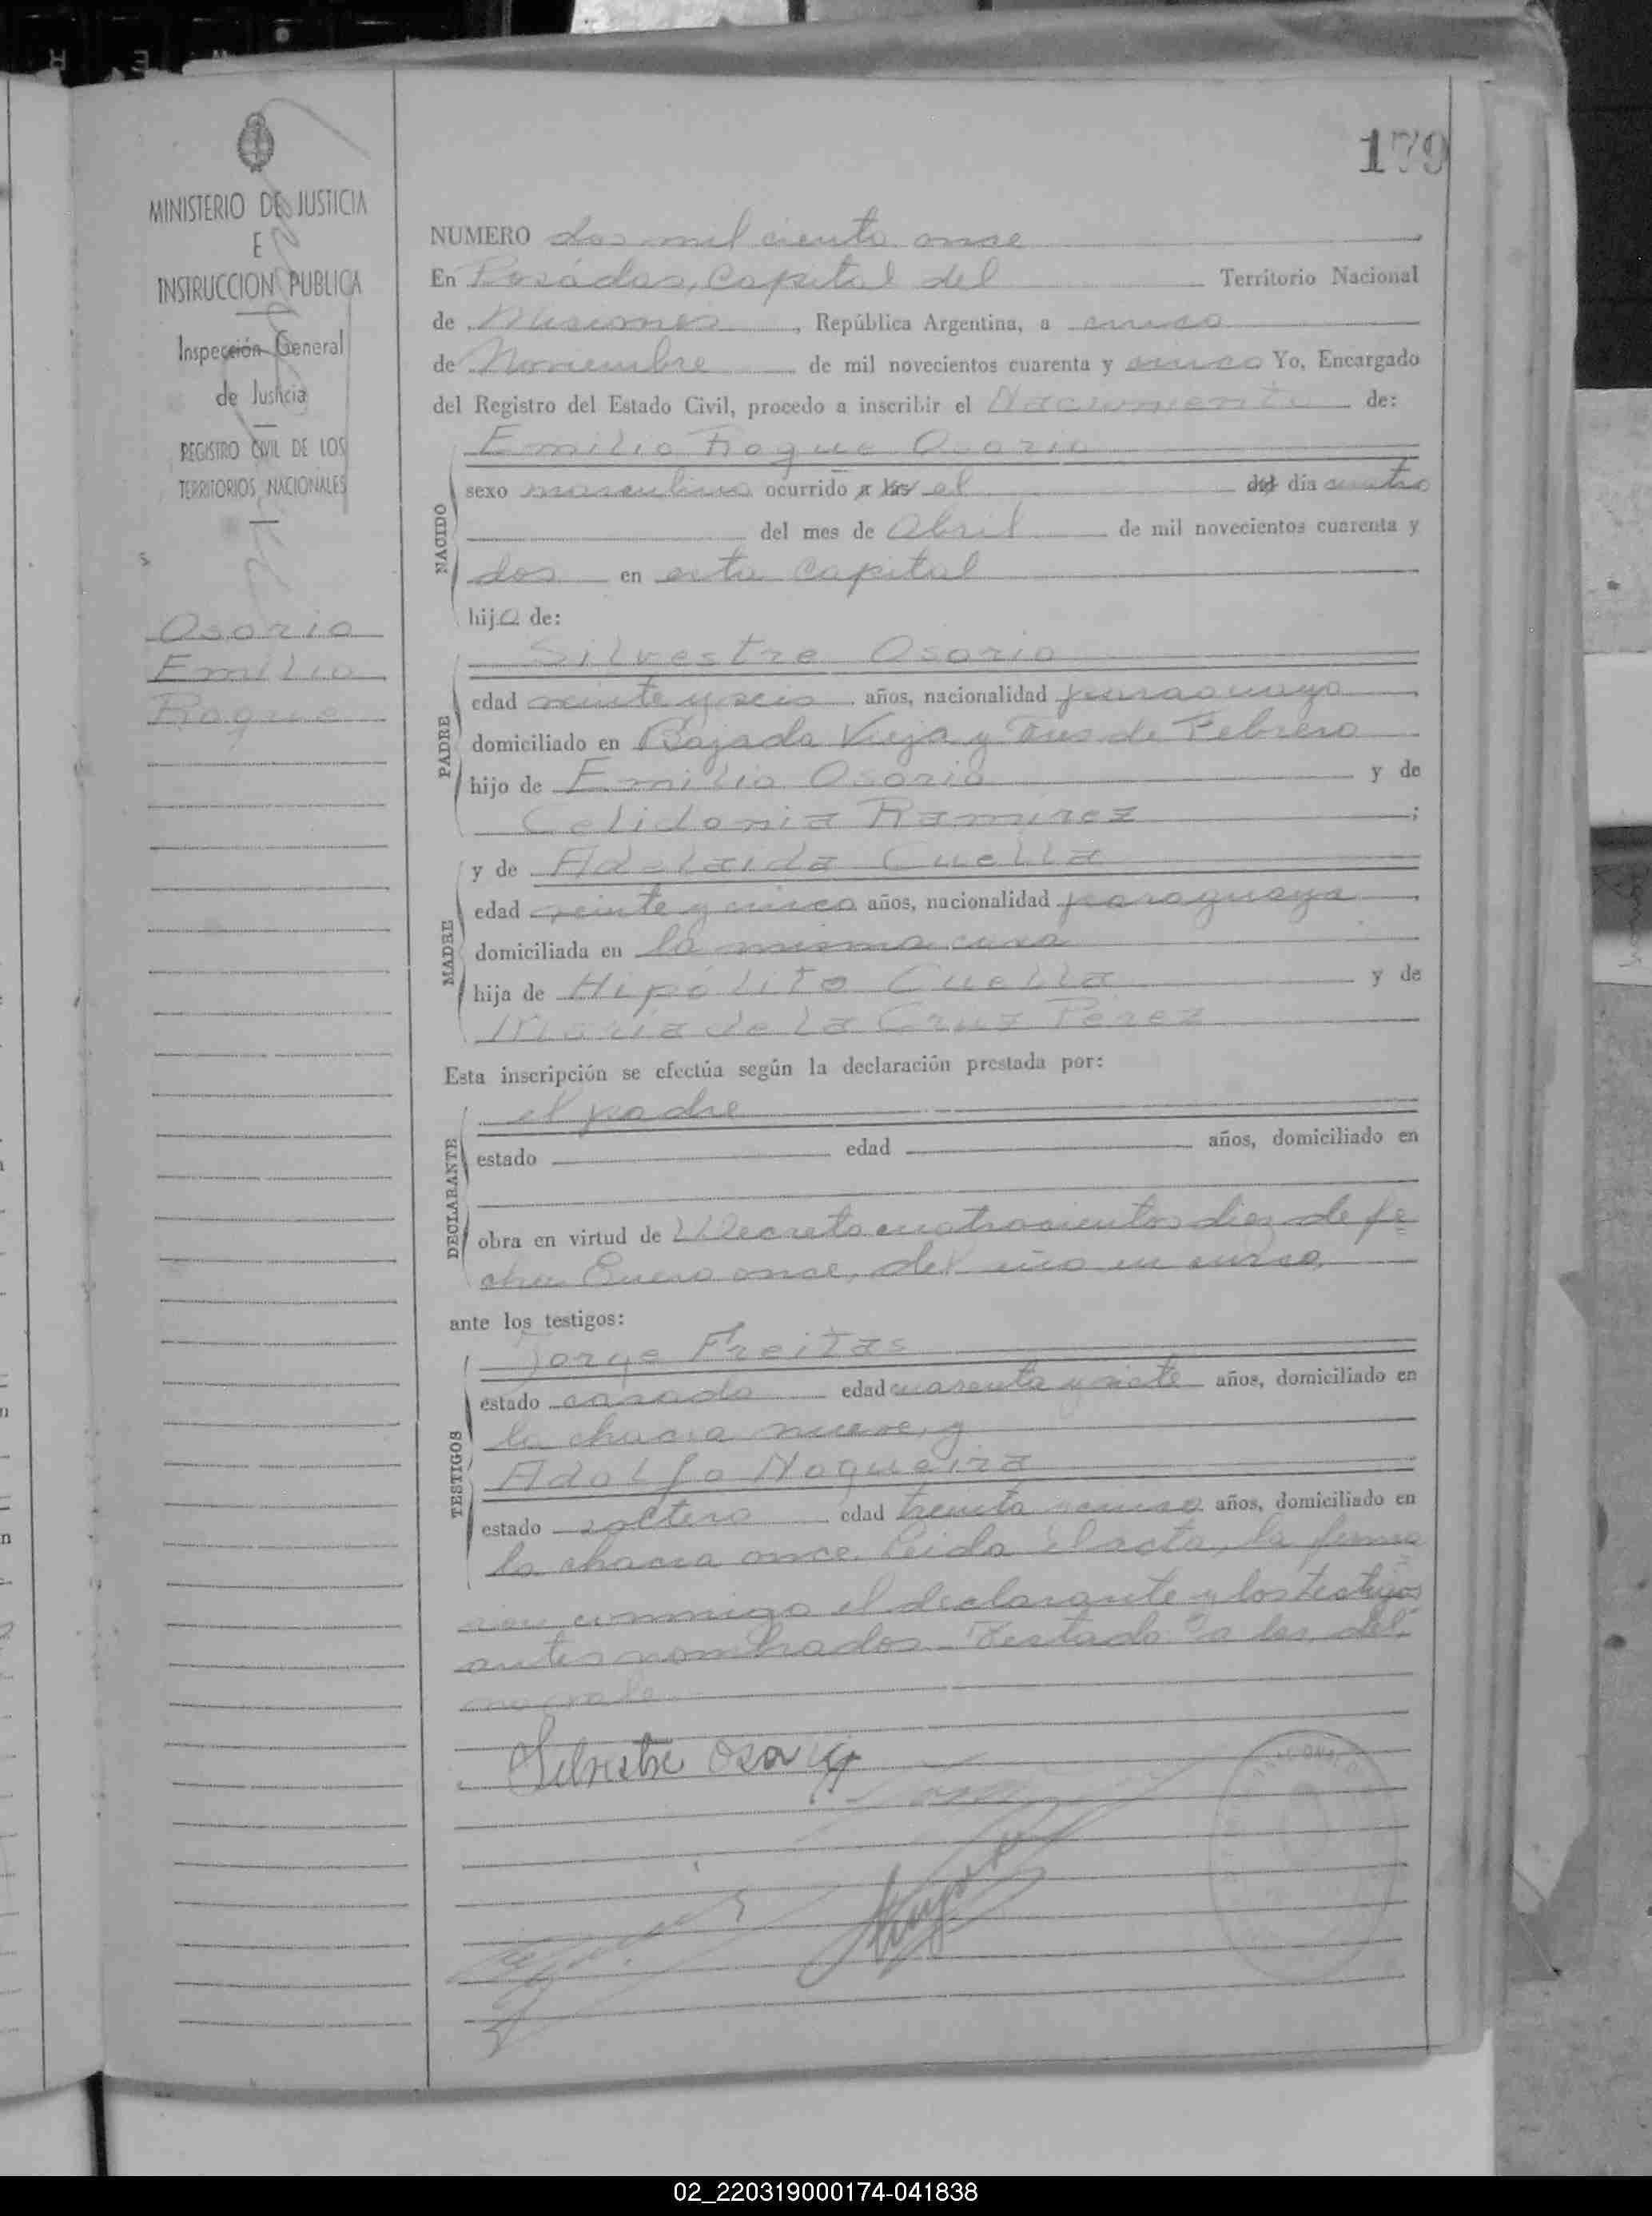 179
MINISTERIO DE JUSTICIA
E
INSTRUCCION PUBLICA
Inspección General
de Justicia
REGISTRO CIVIL DE LOS
TERRITORIOS NACIONALES
Osorio
Emilio
Roque
NUMERO dos mil ciento once
En Posádas, Capital del Territorio Nacional
de Misiones, República Argentina, a cinco
de Noviembre de mil novecientos cuarenta y cinco Yo, Encargado
del Registro del Estado Civil, procedo a inscribir el Nacimiento de:
Emilio Roque Osorio
NACIDO
sexo masculino ocurrido a las el del día cuatro
del mes de Abril de mil novecientos cuarenta y
dos en esta Capital
hijo de:
PADRE
Silvestre Osorio
edad veinte y seis años, nacionalidad paraguayo
domiciliado en Bajada Vieja y Tres de Febrero
hijo de Emilio Osorio y de
Celidonia Ramirez;
MADRE
y de Adelaida Cuella
edad veinte y cinco años, nacionalidad paraguaya,
domiciliada en la misma casa
hija de Hipólito Cuella y de
Maria de la Cruz Perez
Esta inscripción se efectúa según la declaración prestada por:
DECLARANTE
el padre
estado edad años, domiciliado en
obra en virtud de Decreto cuatrocientos diez de fe
cha Enero once, del año en curso
ante los testigos:
TESTIGOS
Jorge Freitas
estado casado edad cuarenta y siete años, domiciliado en
la chacra nueve, y
Adolfo Nogueira
estado soltero edad treinta años, domiciliado en
la chacra once. Leida el acta, la firma
ron conmigo el declarante y los testigos
antes nombrados. Testado "a las, del"
no vale
Silvestre Osorio
02_220319000174-041838